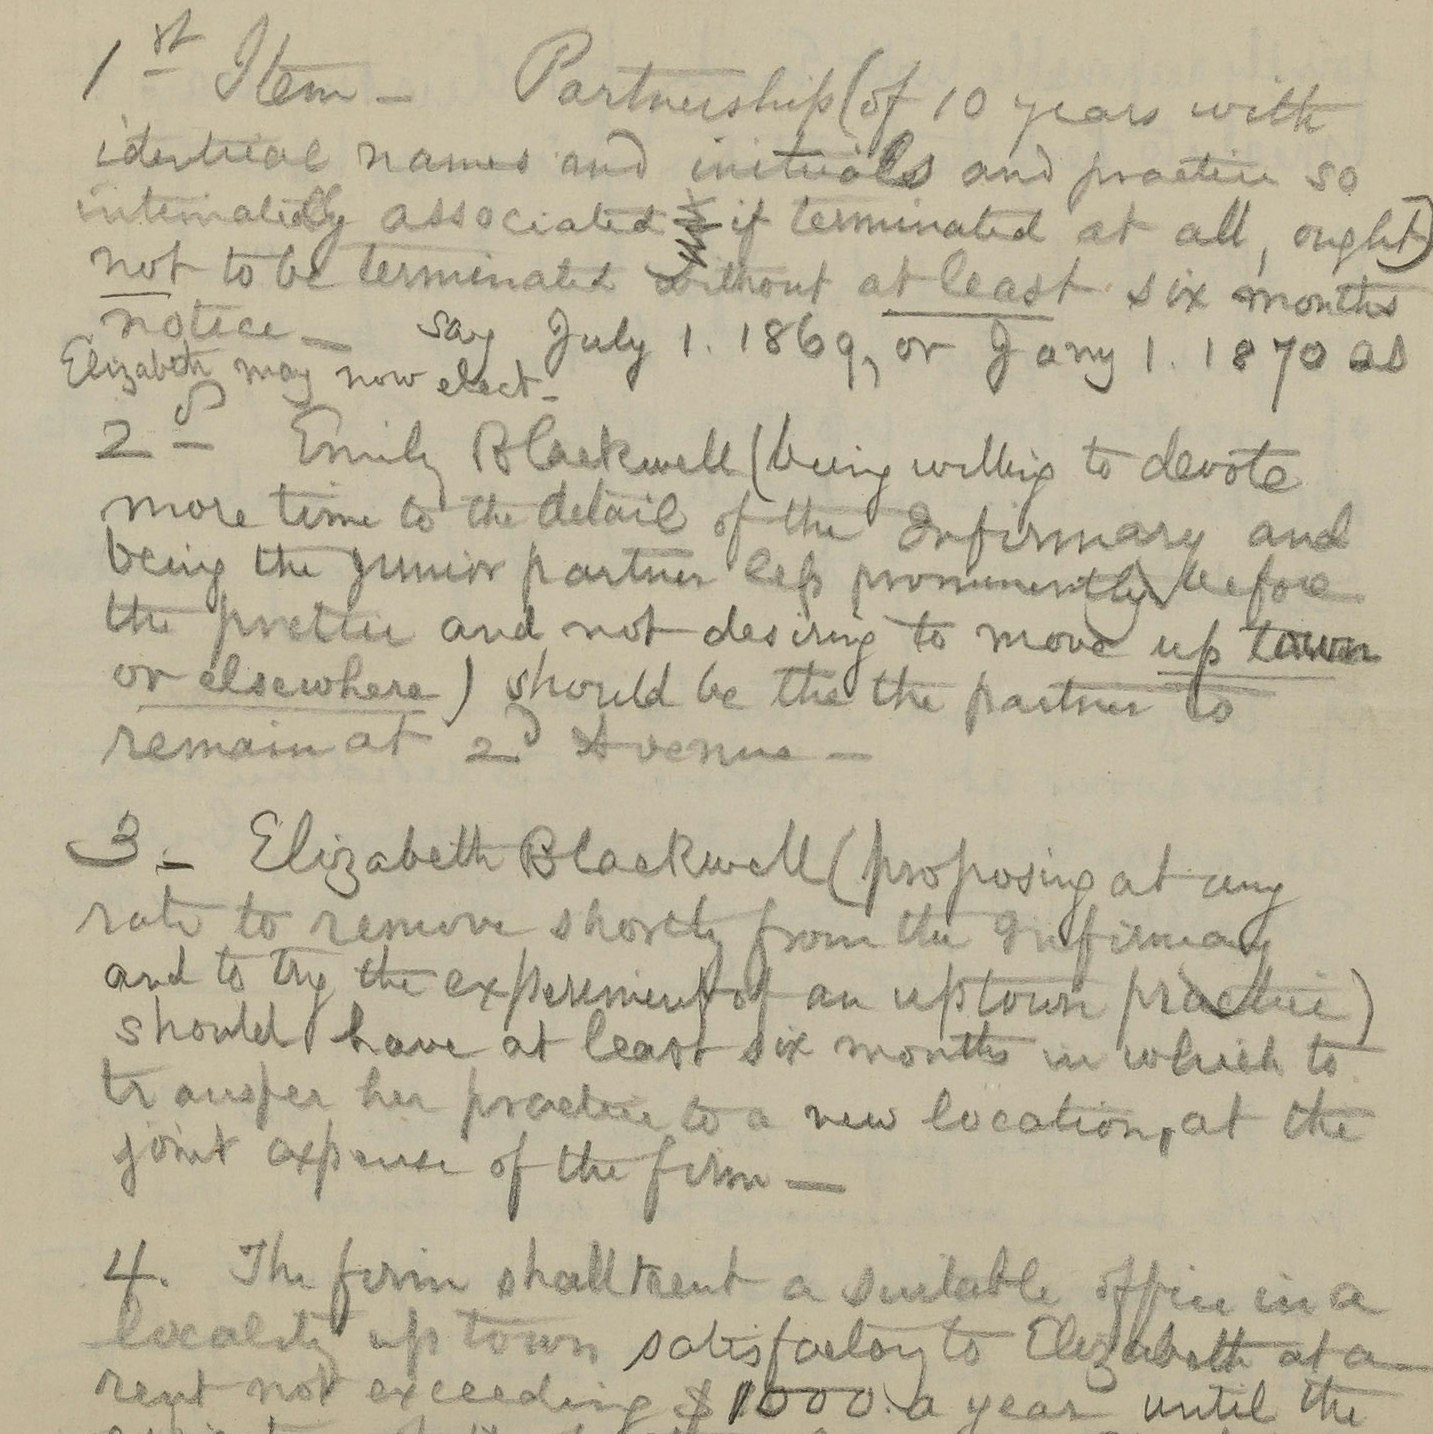 1st Item - Partnership (of 10 years with
identical names and initials and practice so
intimately associated if terminated at all, ought)
not to be terminated without at least six months
notice - say July 1. 1869, or Jany 1. 1870 as
Elizabeth may now elect -
2d - Emily Blackwell (being willing to devote
more time to the detail of the Infirmary and
being the junior partner less prominently before
the practice and not desiring to move up town
or elsewhere) should be the the partner to
remain at 2d Avenue -
3. - Elizabeth Blackwell (proposing at any
rate to remove shortly from the Infirmary
and to try the experiment of an uptown practice)
should have at least six months in which to
transfer her practice to a new location, at the
joint expense of the firm -
4. The firm shall rent a suitable office in a
locality up town satisfactory to Elizabeth at a
rent not exceeding $1000. a year until the